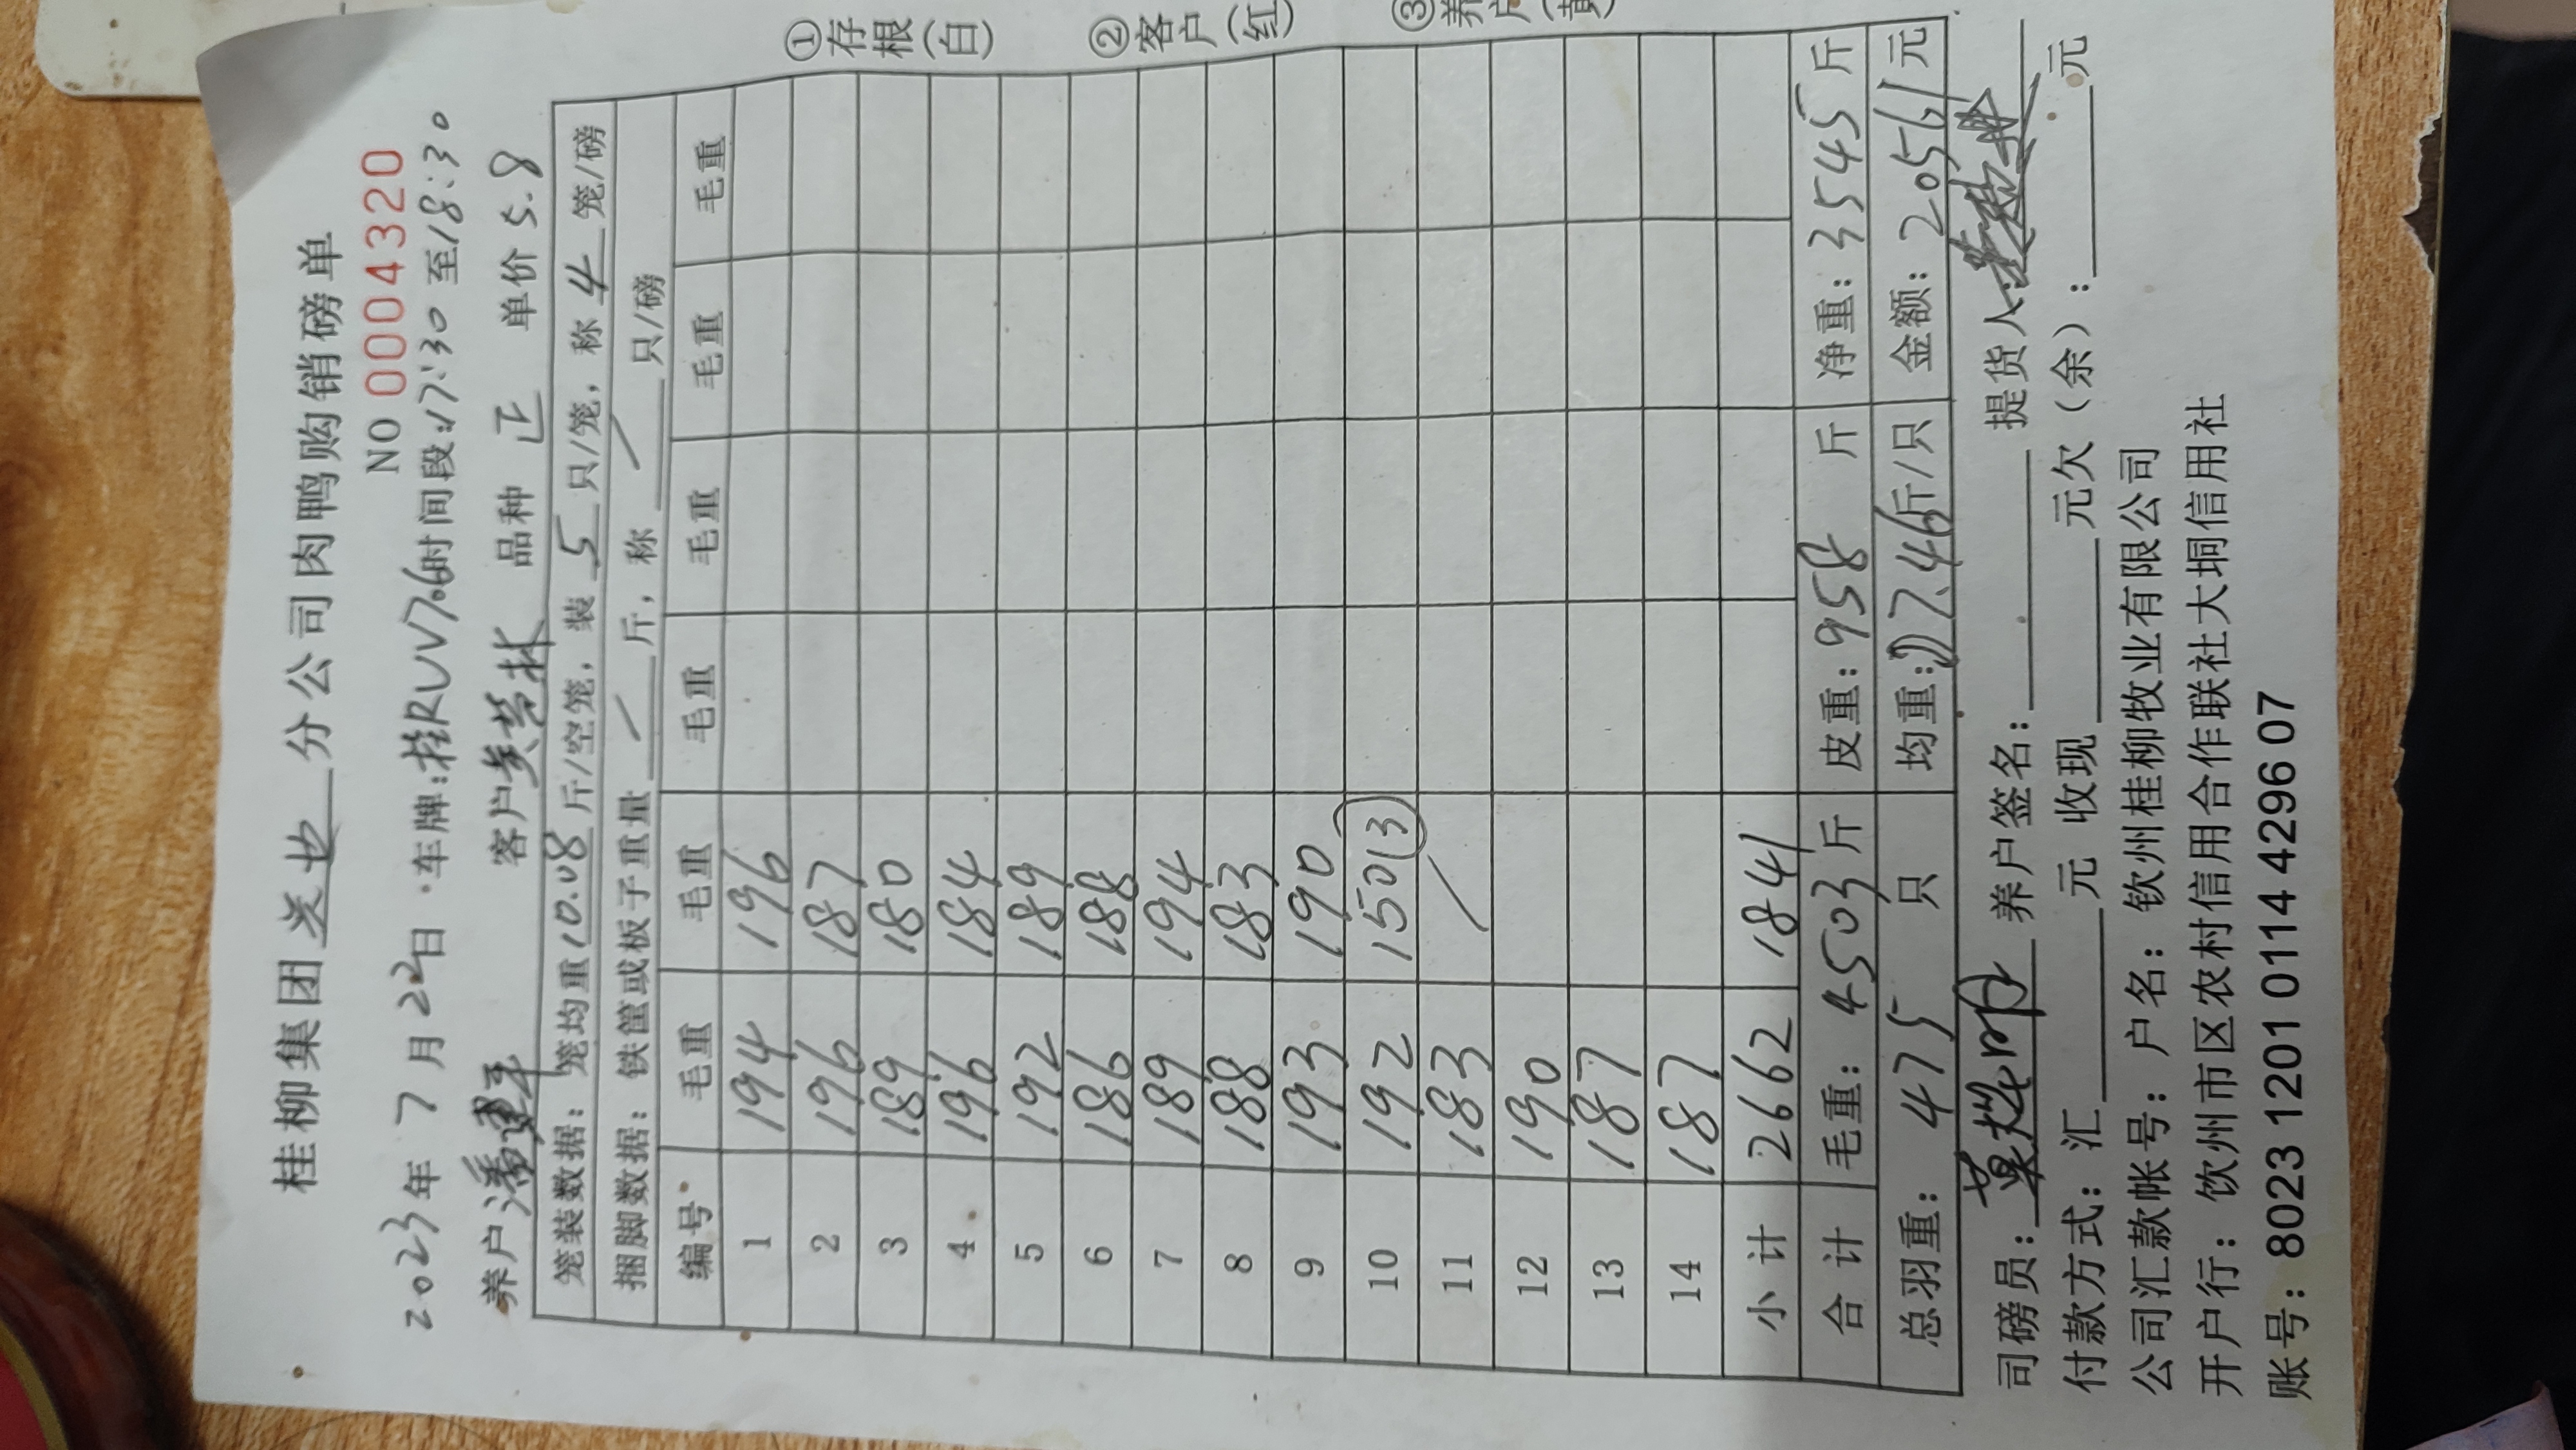 桂柳集团 分公司肉鸭购销磅单
NO 0004320
2023年7月22日 车牌:桂RUV706时间段:17:30至18:30
养户潘 客户黄 林 品种 正 单价5.8
笼装数据:笼均重10.08斤/空笼,装5只/笼,称4笼/磅
捆脚数据:铁筐或板子重量/斤,称/只/磅
编号 毛重 毛重 毛重 毛重 毛重 毛重
1 194 196
2 196 187
3 189 180
4 196 184
5 192 189
6 186 188
7 189 194
8 188 183
9 193 190
10 192 150(3)
11 183 /
12 190
13 187
14 187
小计 2662 1841
合计 毛重:4503斤 皮重:958斤 净重:3545斤
总羽重:475只 均重:7.46斤/只 金额:20561元
司磅员: 养户签名: 提货人:
付款方式:汇 元 收现 元欠(余): 元
公司汇款帐号:户名:钦州桂柳牧业有限公司
开户行:饮州市区农村信用合作联社大垌信用社
账号:8023 1201 0114 4296 07
①存根(白) ②客户(红) ③养户(黄)